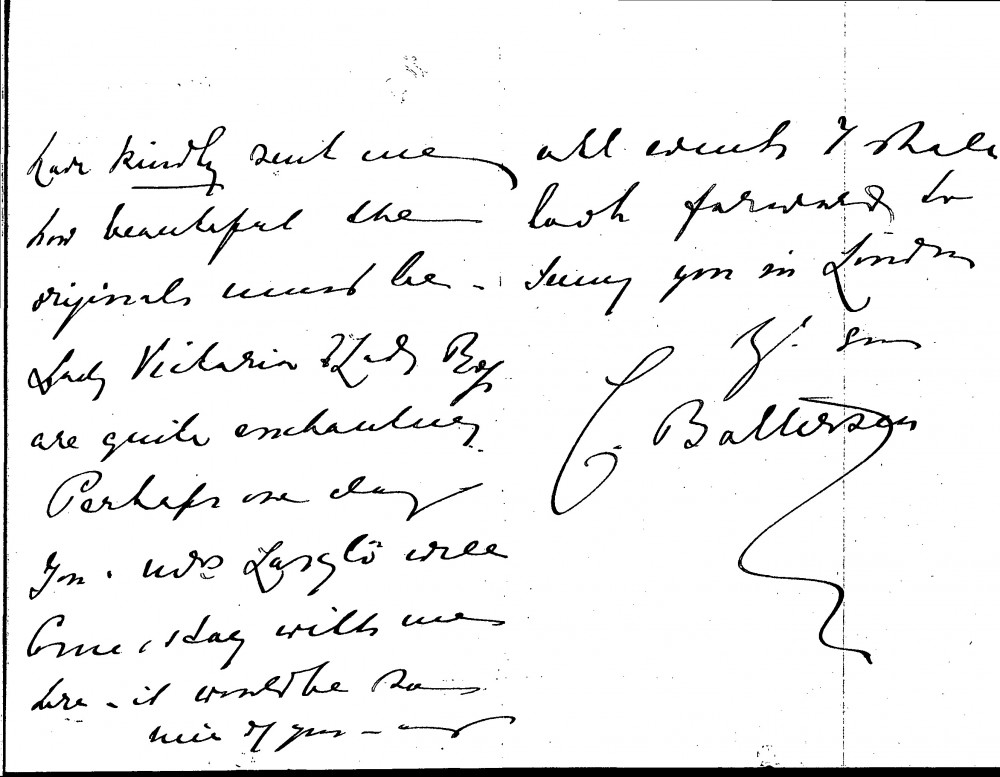 have kindly sent me
how beautiful the
originals must be -
Lady Victoria & Lady
are quite enchanting.
Perhaps one day
You & Mrs László will
Come & stay with me
here - it would be so
nice of you - and
all events I shall
look forward to
seeing you in London
C. Battersea